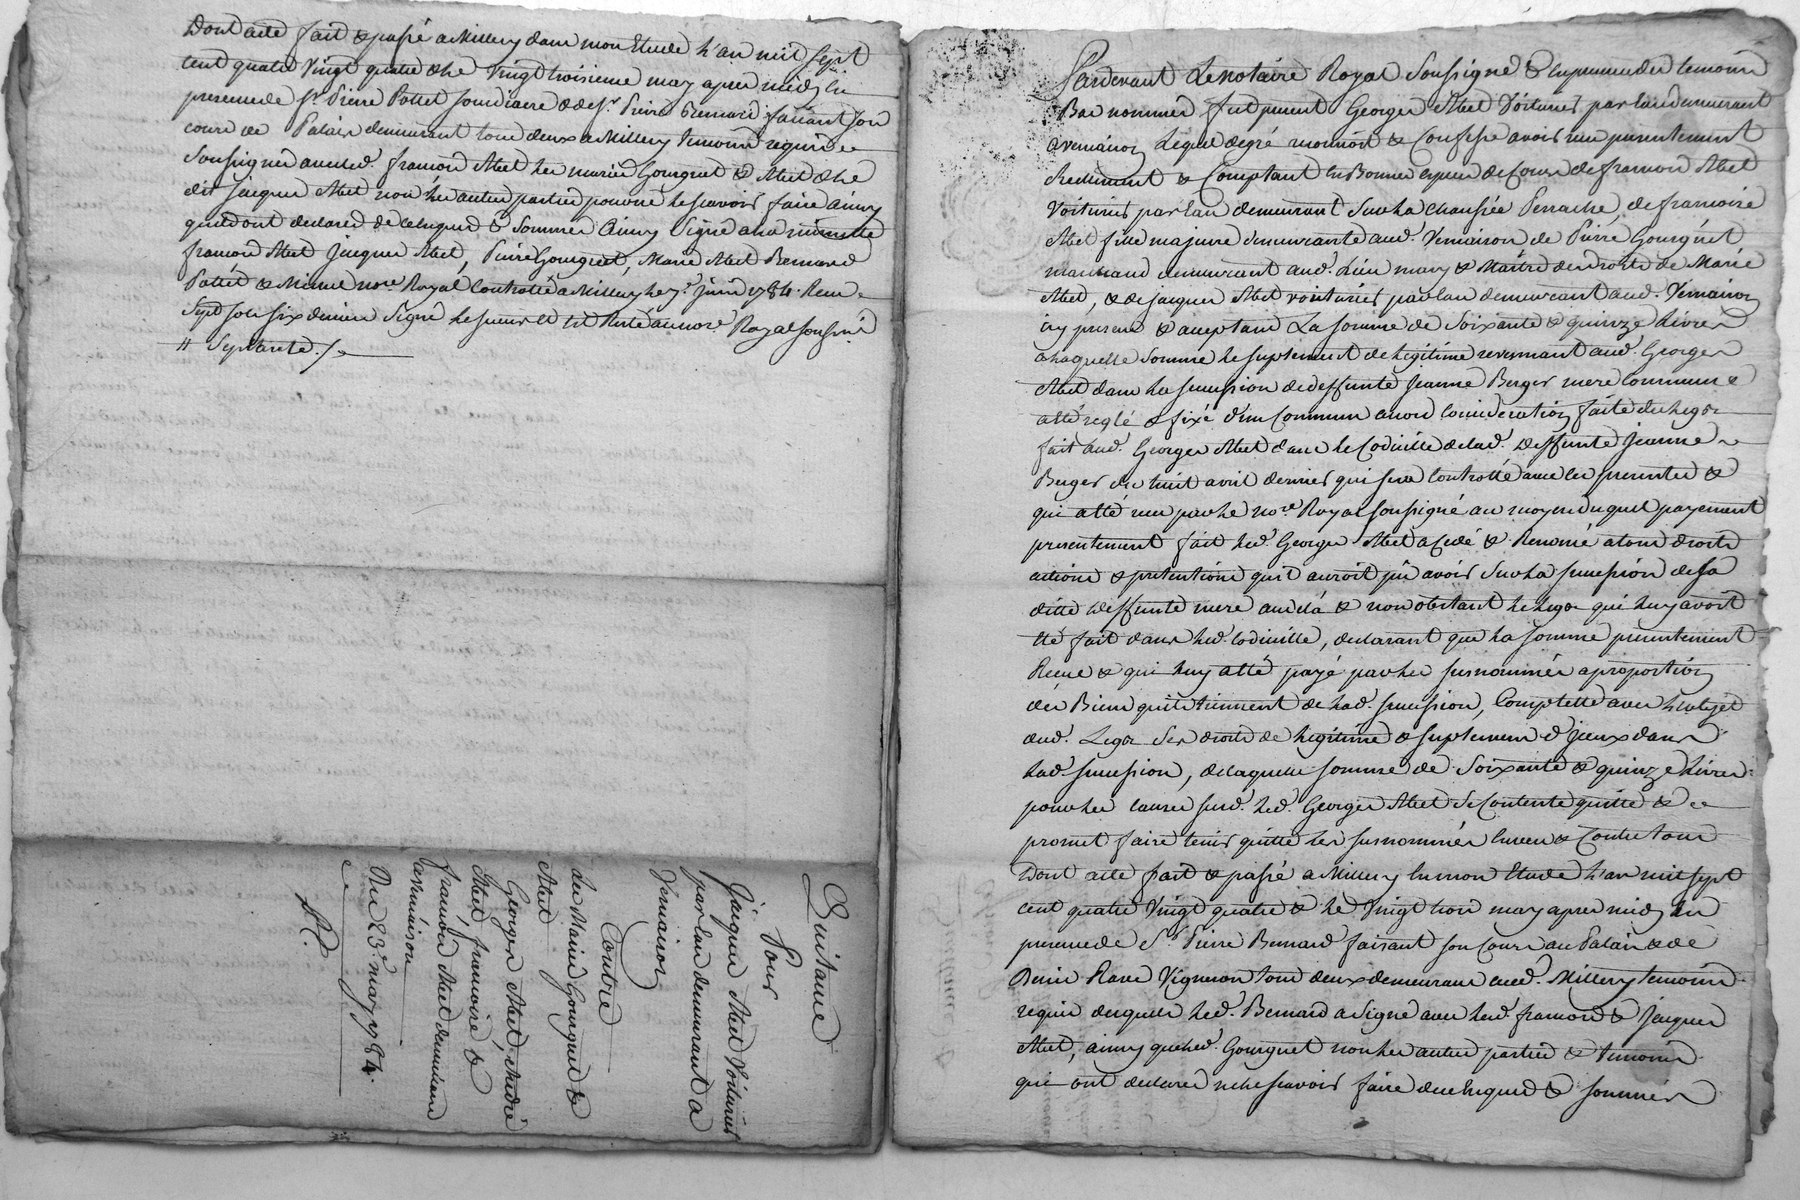 Dont acte fait & passé a Millery dans mon Etude l'an mil sept
cent quatre vingt quatre & le vingt troisieme may apres midy en
presence de Sr. Pierre Pottet & de Sr. Pierre Bernard faisant son
cours de Palais demeurant tous deux a Millery temoins requis &
Soussignés avec led. francois Abel les mariés Gourguet & Abel & le
dit Jacques Abel non les autres parties pour ne le scavoir faire ainsy
quils ont declaré de ce enquis & sommés ainsy signé a la minutte
francois Abel Jacques Abel, Pierre Gourguet, Marie Abel Bernard
Pottet & nore. Royal Controllé a Millery le 7e. juin 1784. Recu
Sept sols six deniers Signé
Royal soussigné
// Septante ./.
Quitance
Pour
Jacques Abel Voiturier
par eau demeurant a
Vernaison
Contre
les Mariés Gourguet &
Abel
Georges Abel, André
Abel, francoise &
francois Abel demeurans
a Vernaison
Du 23e. may 1784.
Pardevant Le Notaire Royal Soussigné & en presence des temoins
Bas nommés fut present Georges Abel Voiturier par eau demeurant
a Vernaison Lequel de gré reconnoit & Confesse avoir recu presentement
Reellement & Comptant en Bonnes especes de Cours de francois Abel
Voiturier par eau demeurant sur la chaussée Perrache, de francoise
Abel fille majeure demeurante aud. Vernaison de Pierre Gourguet
marchand demeurant aud. Lieu mary & Maitre des droits de Marie
Abel, & de jacques Abel voiturier par eau demeurant aud. Vernaison
icy presens & acceptans La somme de soixante & quinze Livres
a laquelle somme le suplement de legitime revenant aud. Georges
Abel dans la succession de deffunte Jeanne Berger mere commune
a été reglé & fixé d'un Commun accord consideration faite du legs
fait aud. Georges Abel dans le Codicille de lad. deffunte Jeanne
Berger du huit avril dernier qui sera Controllé avec les presentes &
qui a été recu par le nore. Royal soussigné au moyen duquel payement
presentement fait led. Georges Abel a Cedé & Renoncé a tous droits
actions & pretentions quil auroit pû avoir sur la succession de sa
ditte deffunte mere au dela & non obstant le legs qui luy avoit
été fait dans led. Codicille, declarant que la somme presentement
Recue & qui luy a été payé par les susnommés a proportion
des Biens quils tiennent de lad. succession, Complette avec l'objet
dud. Legs ses droits de legitime & suplement d'Jceux dans
lad. succession, de laquelle somme de soixante & quinze Livres
pour les causes susd. led. Georges Abel se Contente quitte &
promet faire tenir quitte les susnommés envers & Contre tous
Dont acte fait & passé a Millery en mon Etude l'an mil sept
cent quatre Vingt quatre & le Vingt trois may apres midy en
presence de Sr. Pierre Bernard faisant son Cours au Palais & de
Vigneron tous deux demeurans aud. Millery temoins
requis desquels led. Bernard a signé avec lesd. francois & Jacques
Abel, ainsy que led. Gourguet non les autres parties & temoins
qui ont declaré ne le scavoir faire de ce enquis & sommés